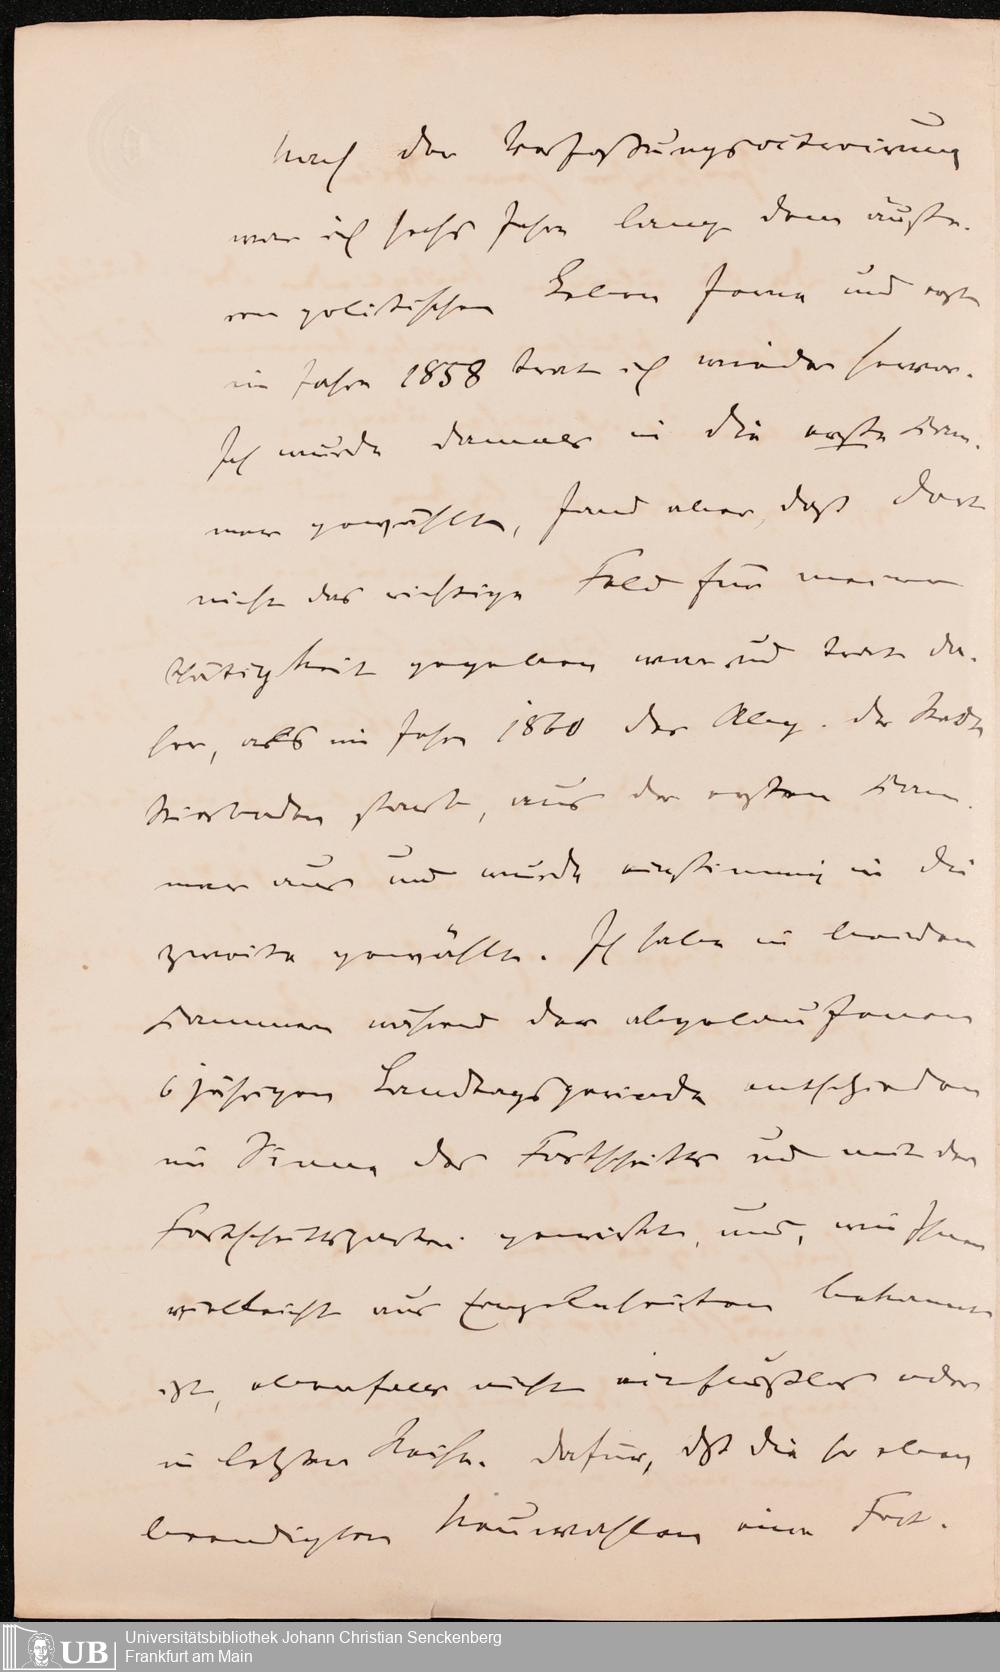 Nach der Verfassungsoctroirung
war ich sechs Jahre lang dem äuße-
ren politischen Leben ferne und erst
im Jahre 1858 trat ich wieder hervor.
Ich wurde damals in die erste Kam-
mer gewählt, fand aber, daß dort
nicht das richtige Feld für meine
Thätigkeit gegeben war und trat da-
her, als im Jahre 1860 der Abg. der Stadt
Wiesbaden starb, aus der ersten Kam-
mer aus und wurde einstimmig in die
zweite gewählt. Ich habe in beiden
Kammern während der abgelaufenen
6 jährigen Landtagsperiode entschieden
im Sinne des Fortschritts und mit der
Fortschrittspartei gewirkt, und, wie Ihnen
vielleicht aus Einzelnheiten bekannt
ist, ebenfalls nicht einflußlos oder
in letzter Reihe. Dafür, daß die so eben
beendigten Neuwahlen eine Fort-
Universitätsbibliothek Johann Christian Senckenberg
UB Frankfurt am Main